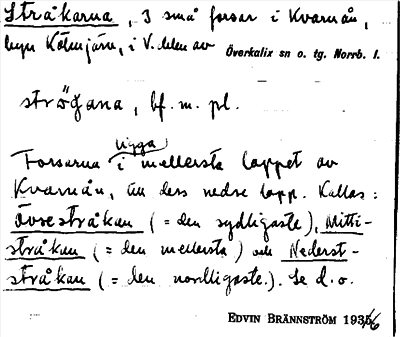 Stråkarna, 3 små forsar i Kvarnån,
byn Kölmjärv, i V. delen av Överkalix sn o. tg. Norrb. l.
strö̬gana, bf. m. pl.
ligga
Forsarna i mellersta loppet av
Kvarnån, än ders nedre lopp. Kallas:
Övrestråkan (= den sydligaste), Mitti-
stråkan (= den mellersta) och Nederst-
stråkan (= den nordligaste.). Se d. o.
EDVIN BRÄNNSTRÖM 1935/46